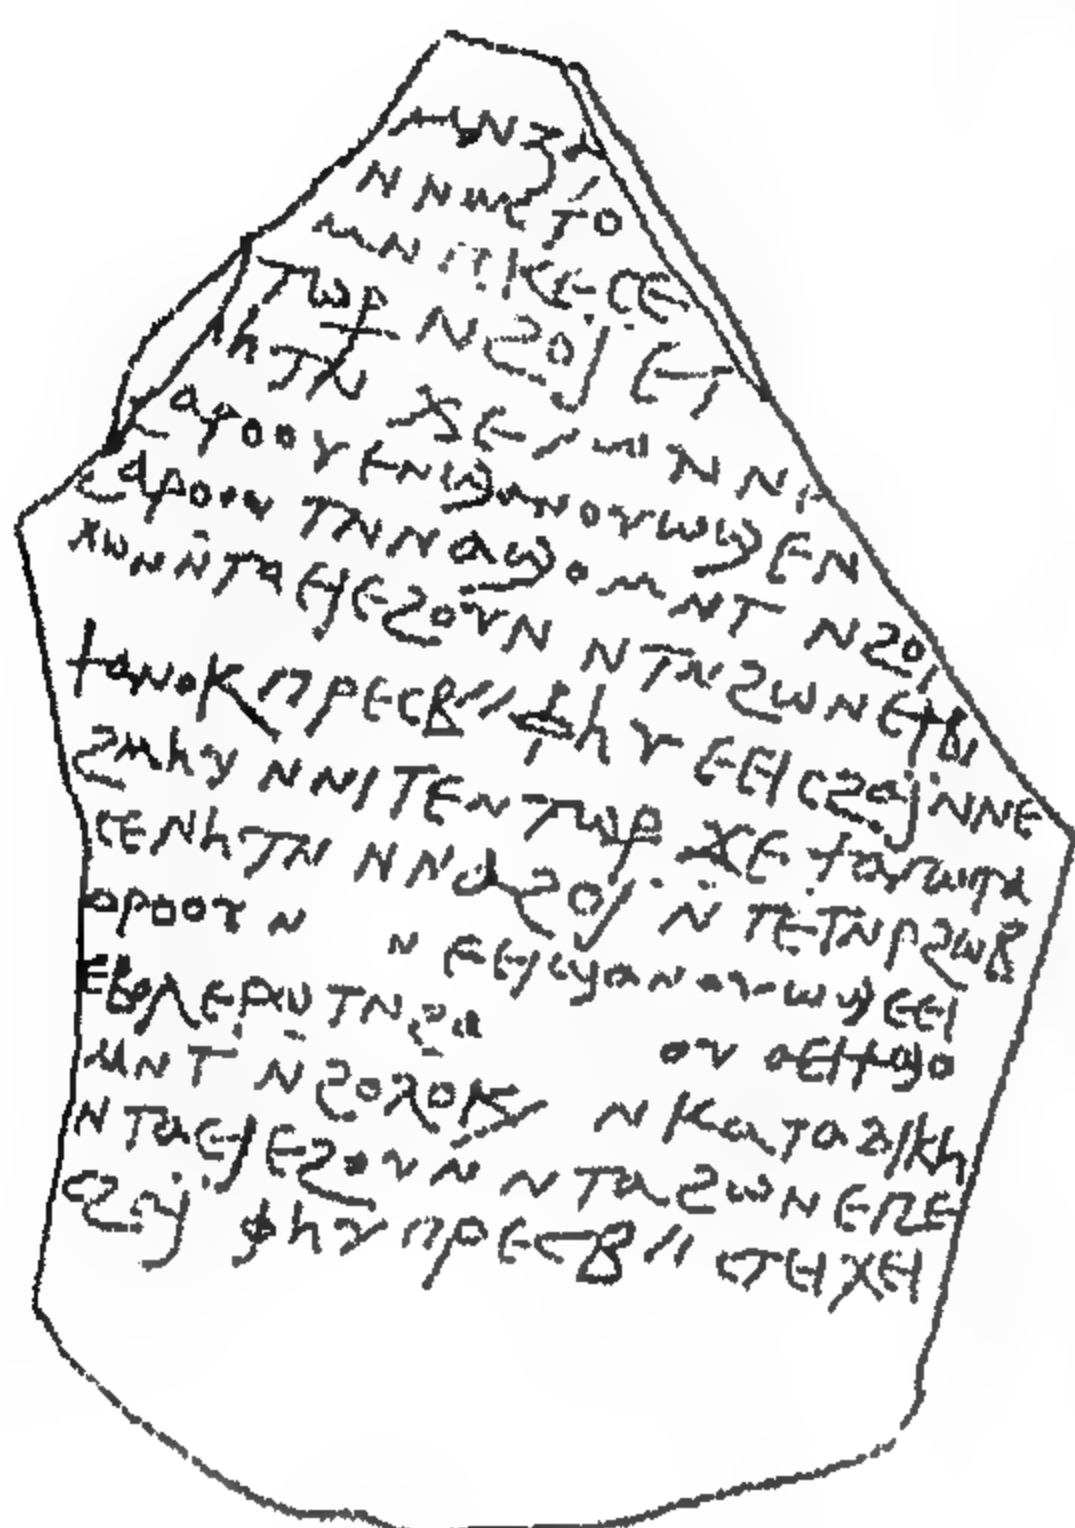 ⲙⲛ
ⲛⲛⲙⲥⲧⲟ
ⲙⲛ ⲡⲓⲕⲉ ⲥⲉ
ⲧⲱⲣ ⲛϩⲟⲓ̈ ⲉⲧ
ⲏⲧⲛ ϫⲉ ⲛⲛⲣ
ϩⲁⲣⲟⲟⲩ ⲉⲛϣⲁⲛⲟⲩⲱϣ ⲉⲛ
ϩⲁⲣⲟⲟⲩ ⲧⲛⲛⲁϣⲟⲙⲛⲧ ⲛϩⲟ
ⲭⲱⲛ ⲛ̄ⲧⲁⲉⲓ ⲉϩⲟⲩⲛ ⲛⲧⲛϩⲱⲛ ⲉⲣⲃⲓ
ϯ ⲁⲛⲟⲕ ⲡⲣⲉⲥⲃ// ⲫⲏⲩ ⲉⲉⲓⲥϩⲁⲓ̈ ⲛⲛⲉ
ϩⲙⲏⲩ ⲛⲛⲓⲧⲉⲛⲧⲱⲣ ϫⲉ
ⲥⲉⲛⲏⲧⲛ ⲛⲛⲁϩⲟⲓ̈ ⲛ̄ⲧⲉⲧⲛⲣϩⲱⲃ
ⲁⲣⲟⲟⲩ ⲛ ⲛ ⲉⲉⲓϣⲁⲛⲟⲩⲱϣ ⲉⲉⲓ
ⲉⲃⲟⲗ ⲉⲣⲱⲧⲛ ϩⲁ ⲟⲩ ⲁⲉⲓϯ ϣⲟ
ⲙⲛⲧ ⲛ̄ϩⲟⲗⲟⲕ/ ⲛⲕⲁⲧⲁⲇⲓⲕⲏ
ⲛⲧⲁⲉⲓ ⲉϩⲟⲩⲛ ⲛⲧⲁϩⲱⲛ ⲉⲡⲉ
ⲥϩⲁⲓ̈ ⲫⲏⲩ ⲡⲣⲉⲥⲃ// ⲥⲧⲉⲓⲭⲉⲓ